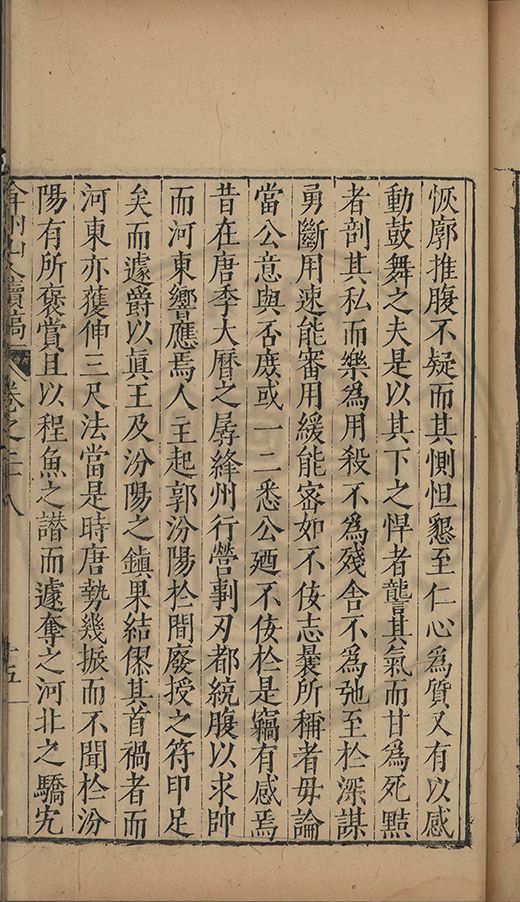 恢廓推腹不疑而其惻怛懇至仁心為質又有以感
動鼓舞之夫是以其下之悍者讋其氣而甘為死黠
者剖其私而樂為用殺不為殘舍不為弛至於深謀
勇斷用速能審用緩能密如不佞志曩所稱者毋論
當公意與否庋或一二悉公廼不佞於是竊有感焉
昔在唐季大曆之孱絳州行營剚刃都統腹以求帥
而河東響應焉人主起郭汾陽於間廢授之符印足
矣而遽爵以眞王及汾陽之鎮果結傺其首禍者而
河東亦獲伸三尺法當是時唐勢幾振而不聞於汾
陽有所褒賞且以程魚之譖而遽奪之河北之驕宄
弇州山人續稿 卷之二十八 十五